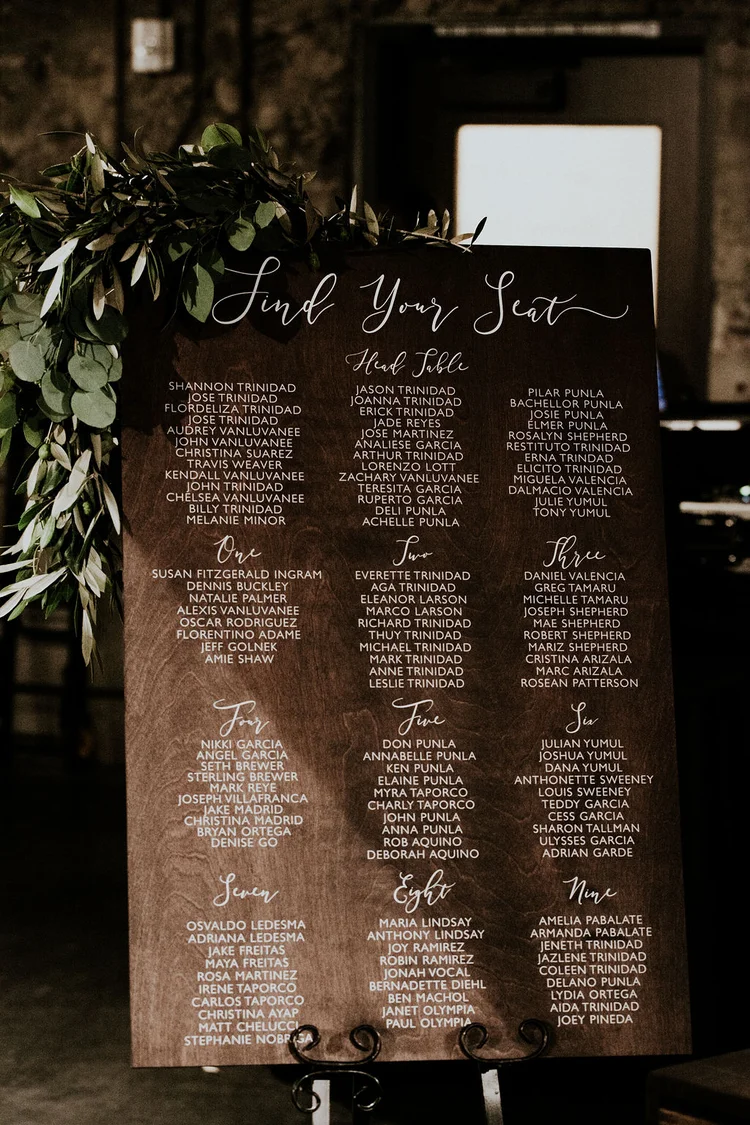 Find Your Seat
Head Table
SHANNON TRINIDAD
JOSE TRINIDAD
FLORDELIZA TRINIDAD
JOSE TRINIDAD
AUDREY VANLUVANEE
JOHN VANLUVANEE
CHRISTINA SUAREZ
TRAVIS WEAVER
KENDALL VANLUVANEE
JOHN TRINIDAD
CHELSEA VANLUVANEE
BILLY TRINIDAD
MELANIE MINOR
JASON TRINIDAD
JOANNA TRINIDAD
ERICK TRINIDAD
JADE REYES
JOSE MARTINEZ
ANALIESE GARCIA
ARTHUR TRINIDAD
LORENZO LOTT
ZACHARY VANLUVANEE
TERESITA GARCIA
RUPERTO GARCIA
DELI PUNLA
ACHELLE PUNLA
PILAR PUNLA
BACHELLOR PUNLA
JOSIE PUNLA
ELMER PUNLA
ROSALYN SHEPHERD
RESTITUTO TRINIDAD
ERNA TRINDAD
ELICITO TRINIDAD
MIGUELA VALENCIA
DALMACIO VALENCIA
JULIE YUMUL
TONY YUMUL
One
SUSAN FITZGERALD INGRAM
DENNIS BUCKLEY
NATALIE PALMER
ALEXIS VANLUVANEE
OSCAR RODRIGUEZ
FLORENTINO ADAME
JEFF GOLNEK
AMIE SHAW
Two
EVERETTE TRINIDAD
AGA TRINIDAD
ELEANOR LARSON
MARCO LARSON
RICHARD TRINIDAD
THUY TRINIDAD
MICHAEL TRINIDAD
MARK TRINIDAD
ANNE TRINIDAD
LESLIE TRINIDAD
Three
DANIEL VALENCIA
GREG TAMARU
MICHELLE TAMARU
JOSEPH SHEPHERD
MAE SHEPHERD
ROBERT SHEPHERD
MARIZ SHEPHERD
CRISTINA ARIZALA
MARC ARIZALA
ROSEAN PATTERSON
Four
NIKKI GARCIA
ANGEL GARCIA
SETH BREWER
STERLING BREWER
MARK REYE
JOSEPH VILLAFRANCA
JAKE MADRID
CHRISTINA MADRID
BRYAN ORTEGA
DENISE GO
Five
DON PUNLA
ANNABELLE PUNLA
KEN PUNLA
ELAINE PUNLA
MYRA TAPORCO
CHARLY TAPORCO
JOHN PUNLA
ANNA PUNLA
ROB AQUINO
DEBORAH AQUINO
Six
JULIAN YUMUL
JOSHUA YUMUL
DANA YUMUL
ANTHONETTE SWEENEY
LOUIS SWEENEY
TEDDY GARCIA
CESS GARCIA
SHARON TALLMAN
ULYSSES GARCIA
ADRIAN GARDE
Seven
OSVALDO LEDESMA
ADRIANA LEDESMA
JAKE FREITAS
MAYA FREITAS
ROSA MARTINEZ
IRENE TAPORCO
CARLOS TAPORCO
CHRISTINA AYAP
MATT CHELUCCI
STEPHANIE NOBRIGA
Eight
MARIA LINDSAY
ANTHONY LINDSAY
JOY RAMIREZ
ROBIN RAMIREZ
JONAH VOCAL
BERNADETTE DIEHL
BEN MACHOL
JANET OLYMPIA
PAUL OLYMPIA
Nine
AMELIA PABALATE
ARMANDA PABALATE
JENETH TRINIDAD
JAZLENE TRINIDAD
COLEEN TRINIDAD
DELANO PUNLA
LYDIA ORTEGA
AIDA TRINIDAD
JOEY PINEDA